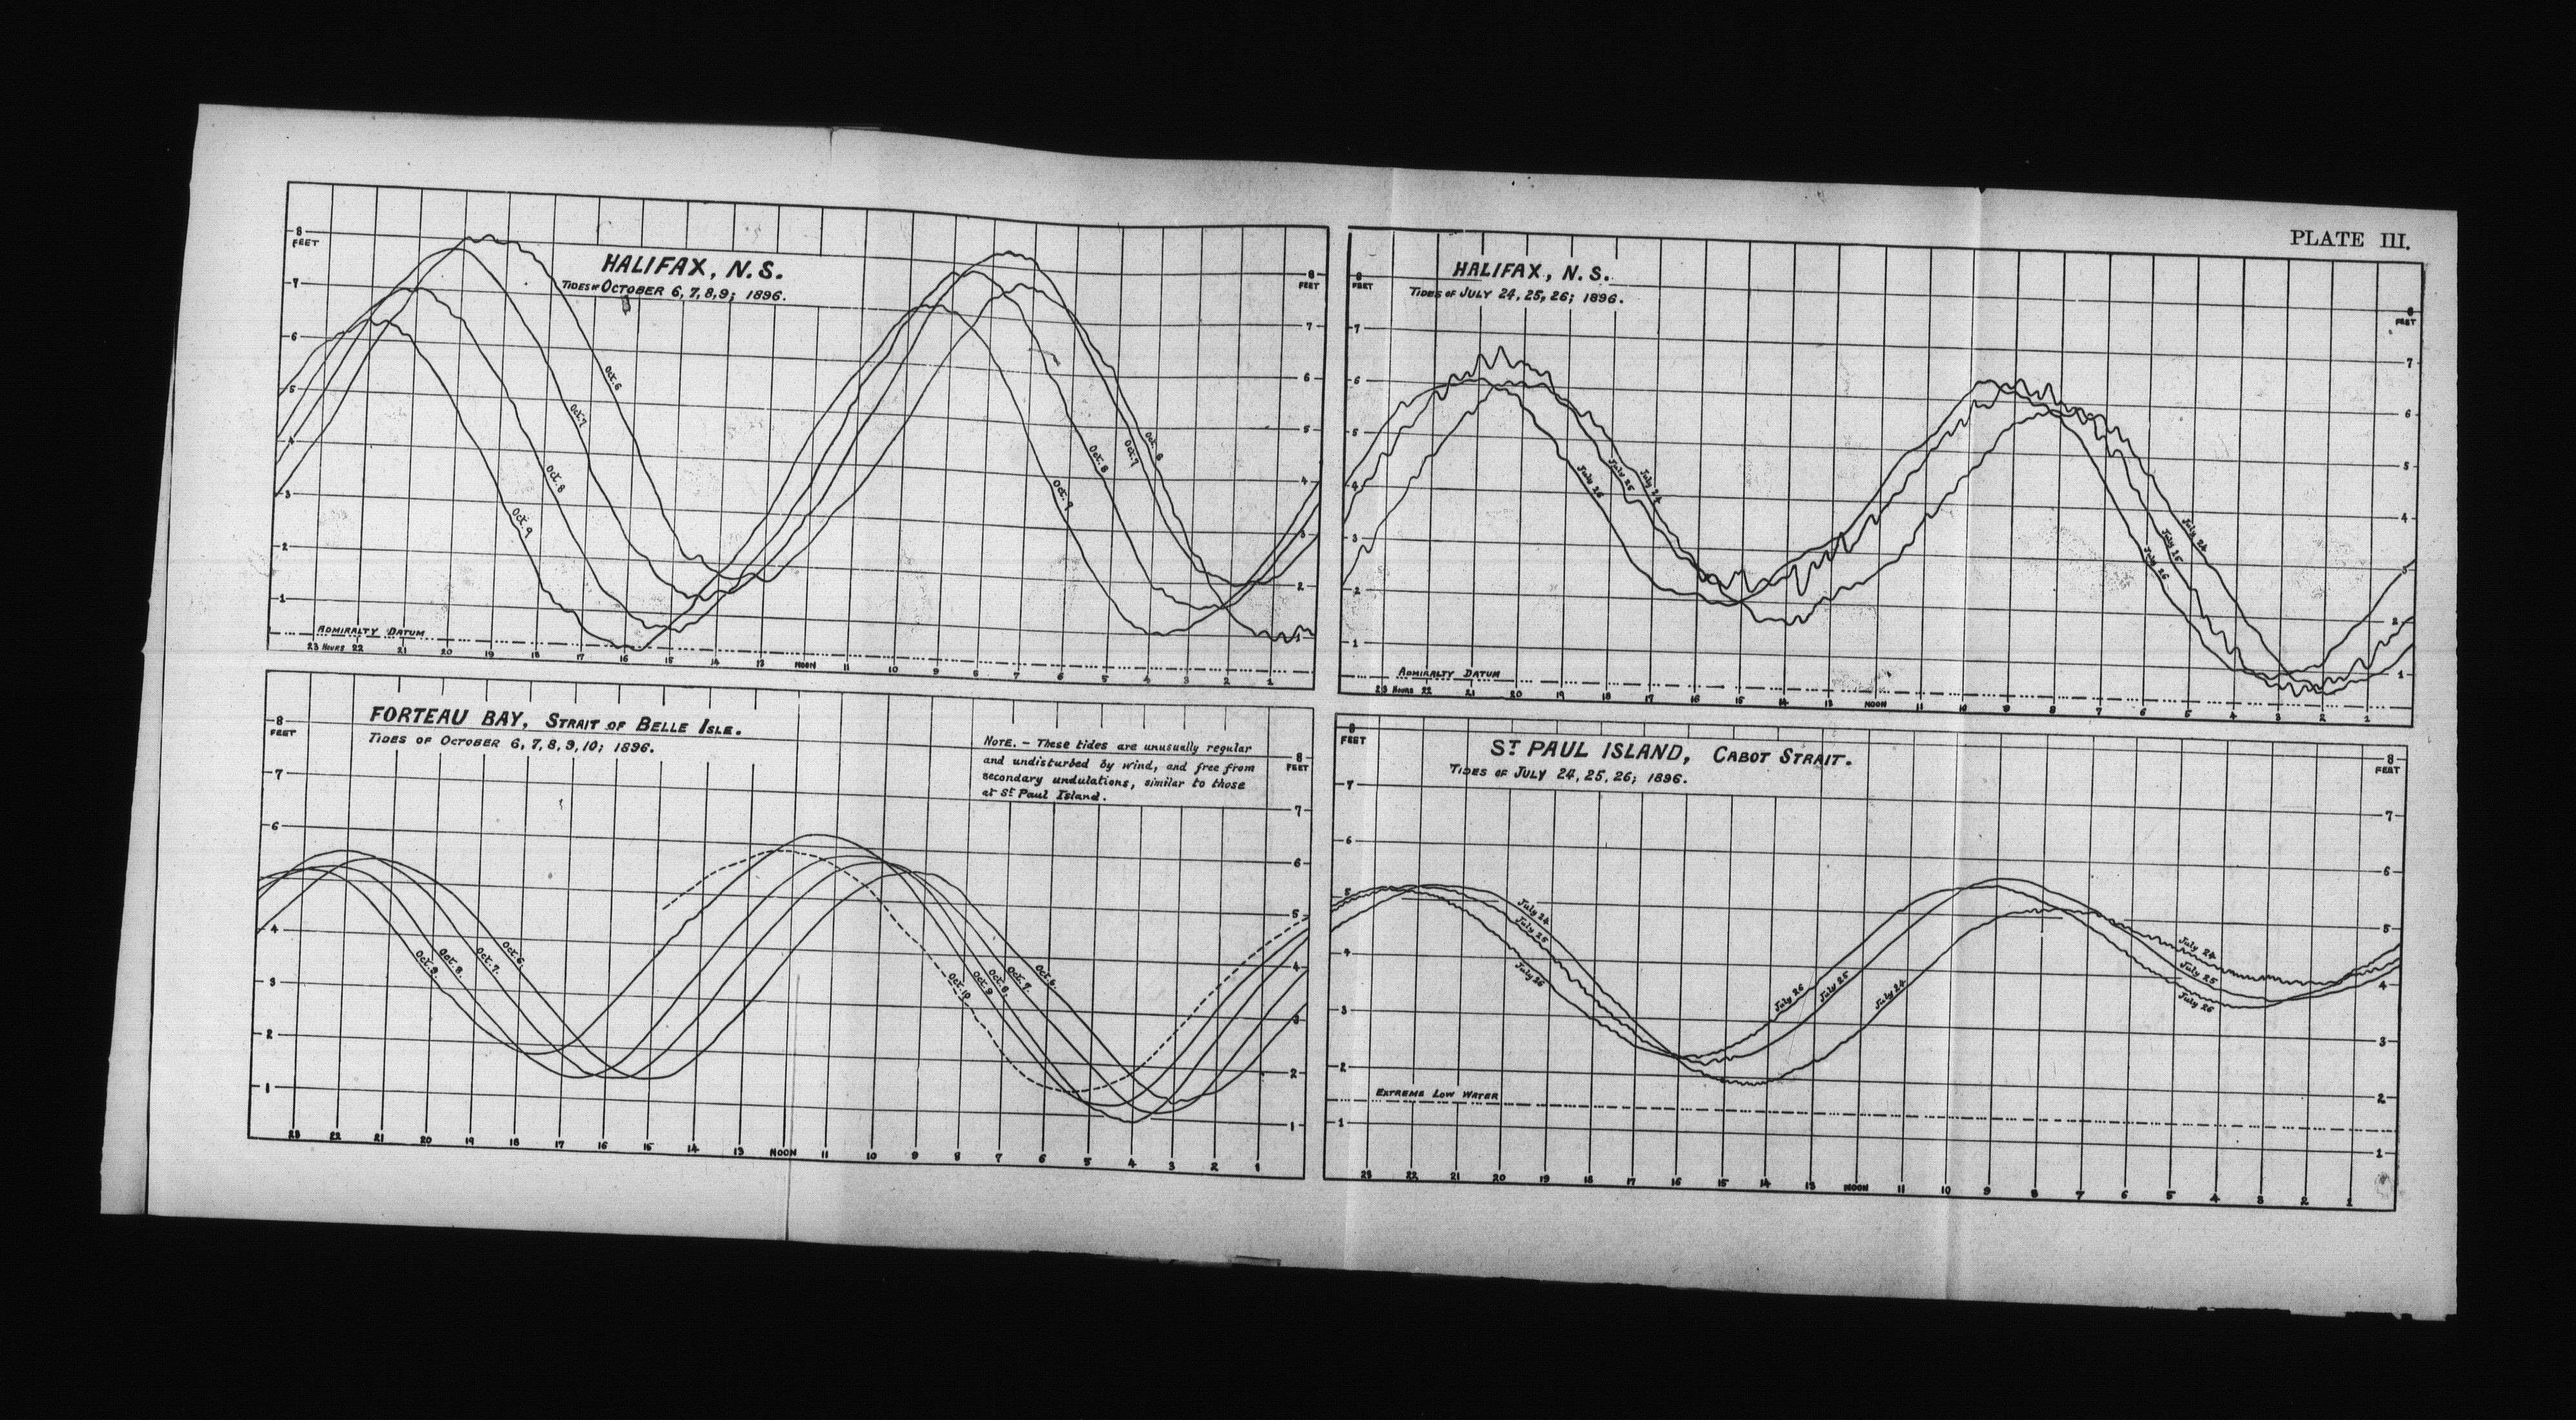 PLATE III.
HALIFAX, N.S.
TIDES OF OCTOBER 6, 7, 8, 9; 1896.
8
FEET
7
6
5
4
3
2
1
8
FEET
7
6
5
4
3
2
1
Oct. 6
Oct. 7
Oct. 8
Oct. 9
Oct. 6
Oct. 7
Oct. 8
Oct. 9
ADMIRALTY DATUM
23 HOURS 22 21 20 19 18 17 16 15 14 13 NOON 11 10 9 8 7 6 5 4 3 2 1
HALIFAX, N.S.
TIDES OF JULY 24, 25, 26; 1896.
8
FEET
7
6
5
4
3
2
1
8
FEET
7
6
5
4
3
2
1
July 24
July 25
July 26
July 24
July 25
July 26
ADMIRALTY DATUM
23 HOURS 22 21 20 19 18 17 16 15 14 13 NOON 11 10 9 8 7 6 5 4 3 2 1
FORTEAU BAY, STRAIT OF BELLE ISLE.
TIDES OF OCTOBER 6, 7, 8, 9, 10; 1896.
NOTE. – These tides are unusually regular
and undisturbed by wind, and free from
secondary undulations, similar to those
at St Paul Island.
8
FEET
7
6
4
3
2
1
8
FEET
7
6
5
4
3
2
1
Oct. 6.
Oct. 7.
Oct. 8.
Oct. 9.
Oct. 6.
Oct. 7.
Oct. 8.
Oct. 9
Oct. 10
23 22 21 20 19 18 17 16 15 14 13 NOON 11 10 9 8 7 6 5 4 3 2 1
ST PAUL ISLAND, CABOT STRAIT.
TIDES OF JULY 24, 25, 26; 1896.
8
FEET
7
6
5
4
3
2
1
8
FEET
7
6
5
4
3
2
1
July 24
July 25
July 26
July 26
July 25
July 24
July 24
July 25
July 26
EXTREME LOW WATER
23 22 21 20 19 18 17 16 15 14 13 NOON 11 10 9 8 7 6 5 4 3 2 1